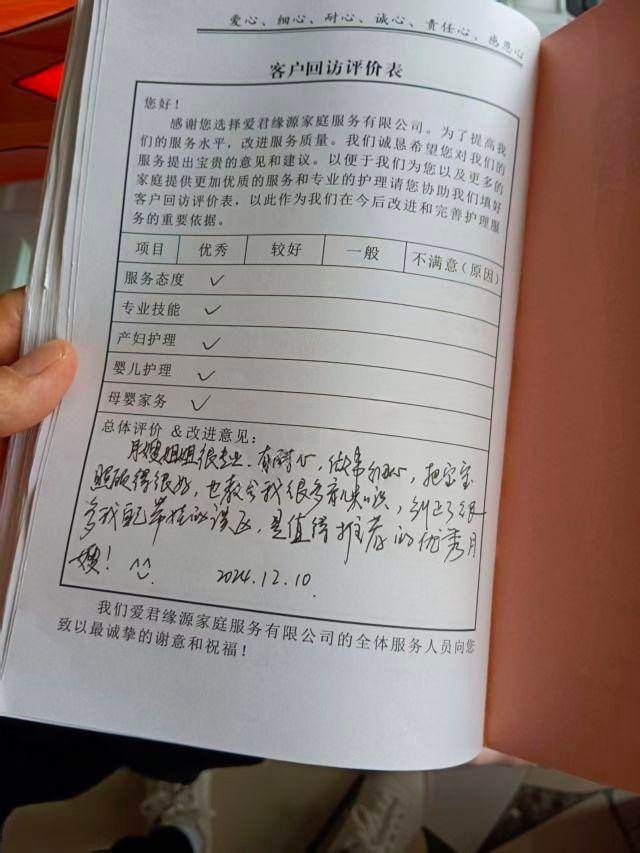 爱心、细心、耐心、诚心、责任心、感恩心
客户回访评价表
您好！
感谢您选择爱君缘源家庭服务有限公司。为了提高我
们的服务水平，改进服务质量。我们诚恳希望您对我们的
服务提出宝贵的意见和建议。以便于我们为您以及更多的
家庭提供更加优质的服务和专业的护理请您协助我们填好
客户回访评价表，以此作为我们在今后改进和完善护理服
务的重要依据。
项目 优秀 较好 一般 不满意（原因）
服务态度 ✓
专业技能 ✓
产妇护理 ✓
婴儿护理 ✓
母婴家务 ✓
总体评价 &改进意见：
月嫂姐姐很专业、有耐心，做事细心，把宝宝
照顾得很好，也教会我很多育儿知识，纠正了很
多我配带娃的误区，是值得推荐的优秀月
嫂！ ^^ 2024.12.10.
我们爱君缘源家庭服务有限公司的全体服务人员向您
致以最诚挚的谢意和祝福！